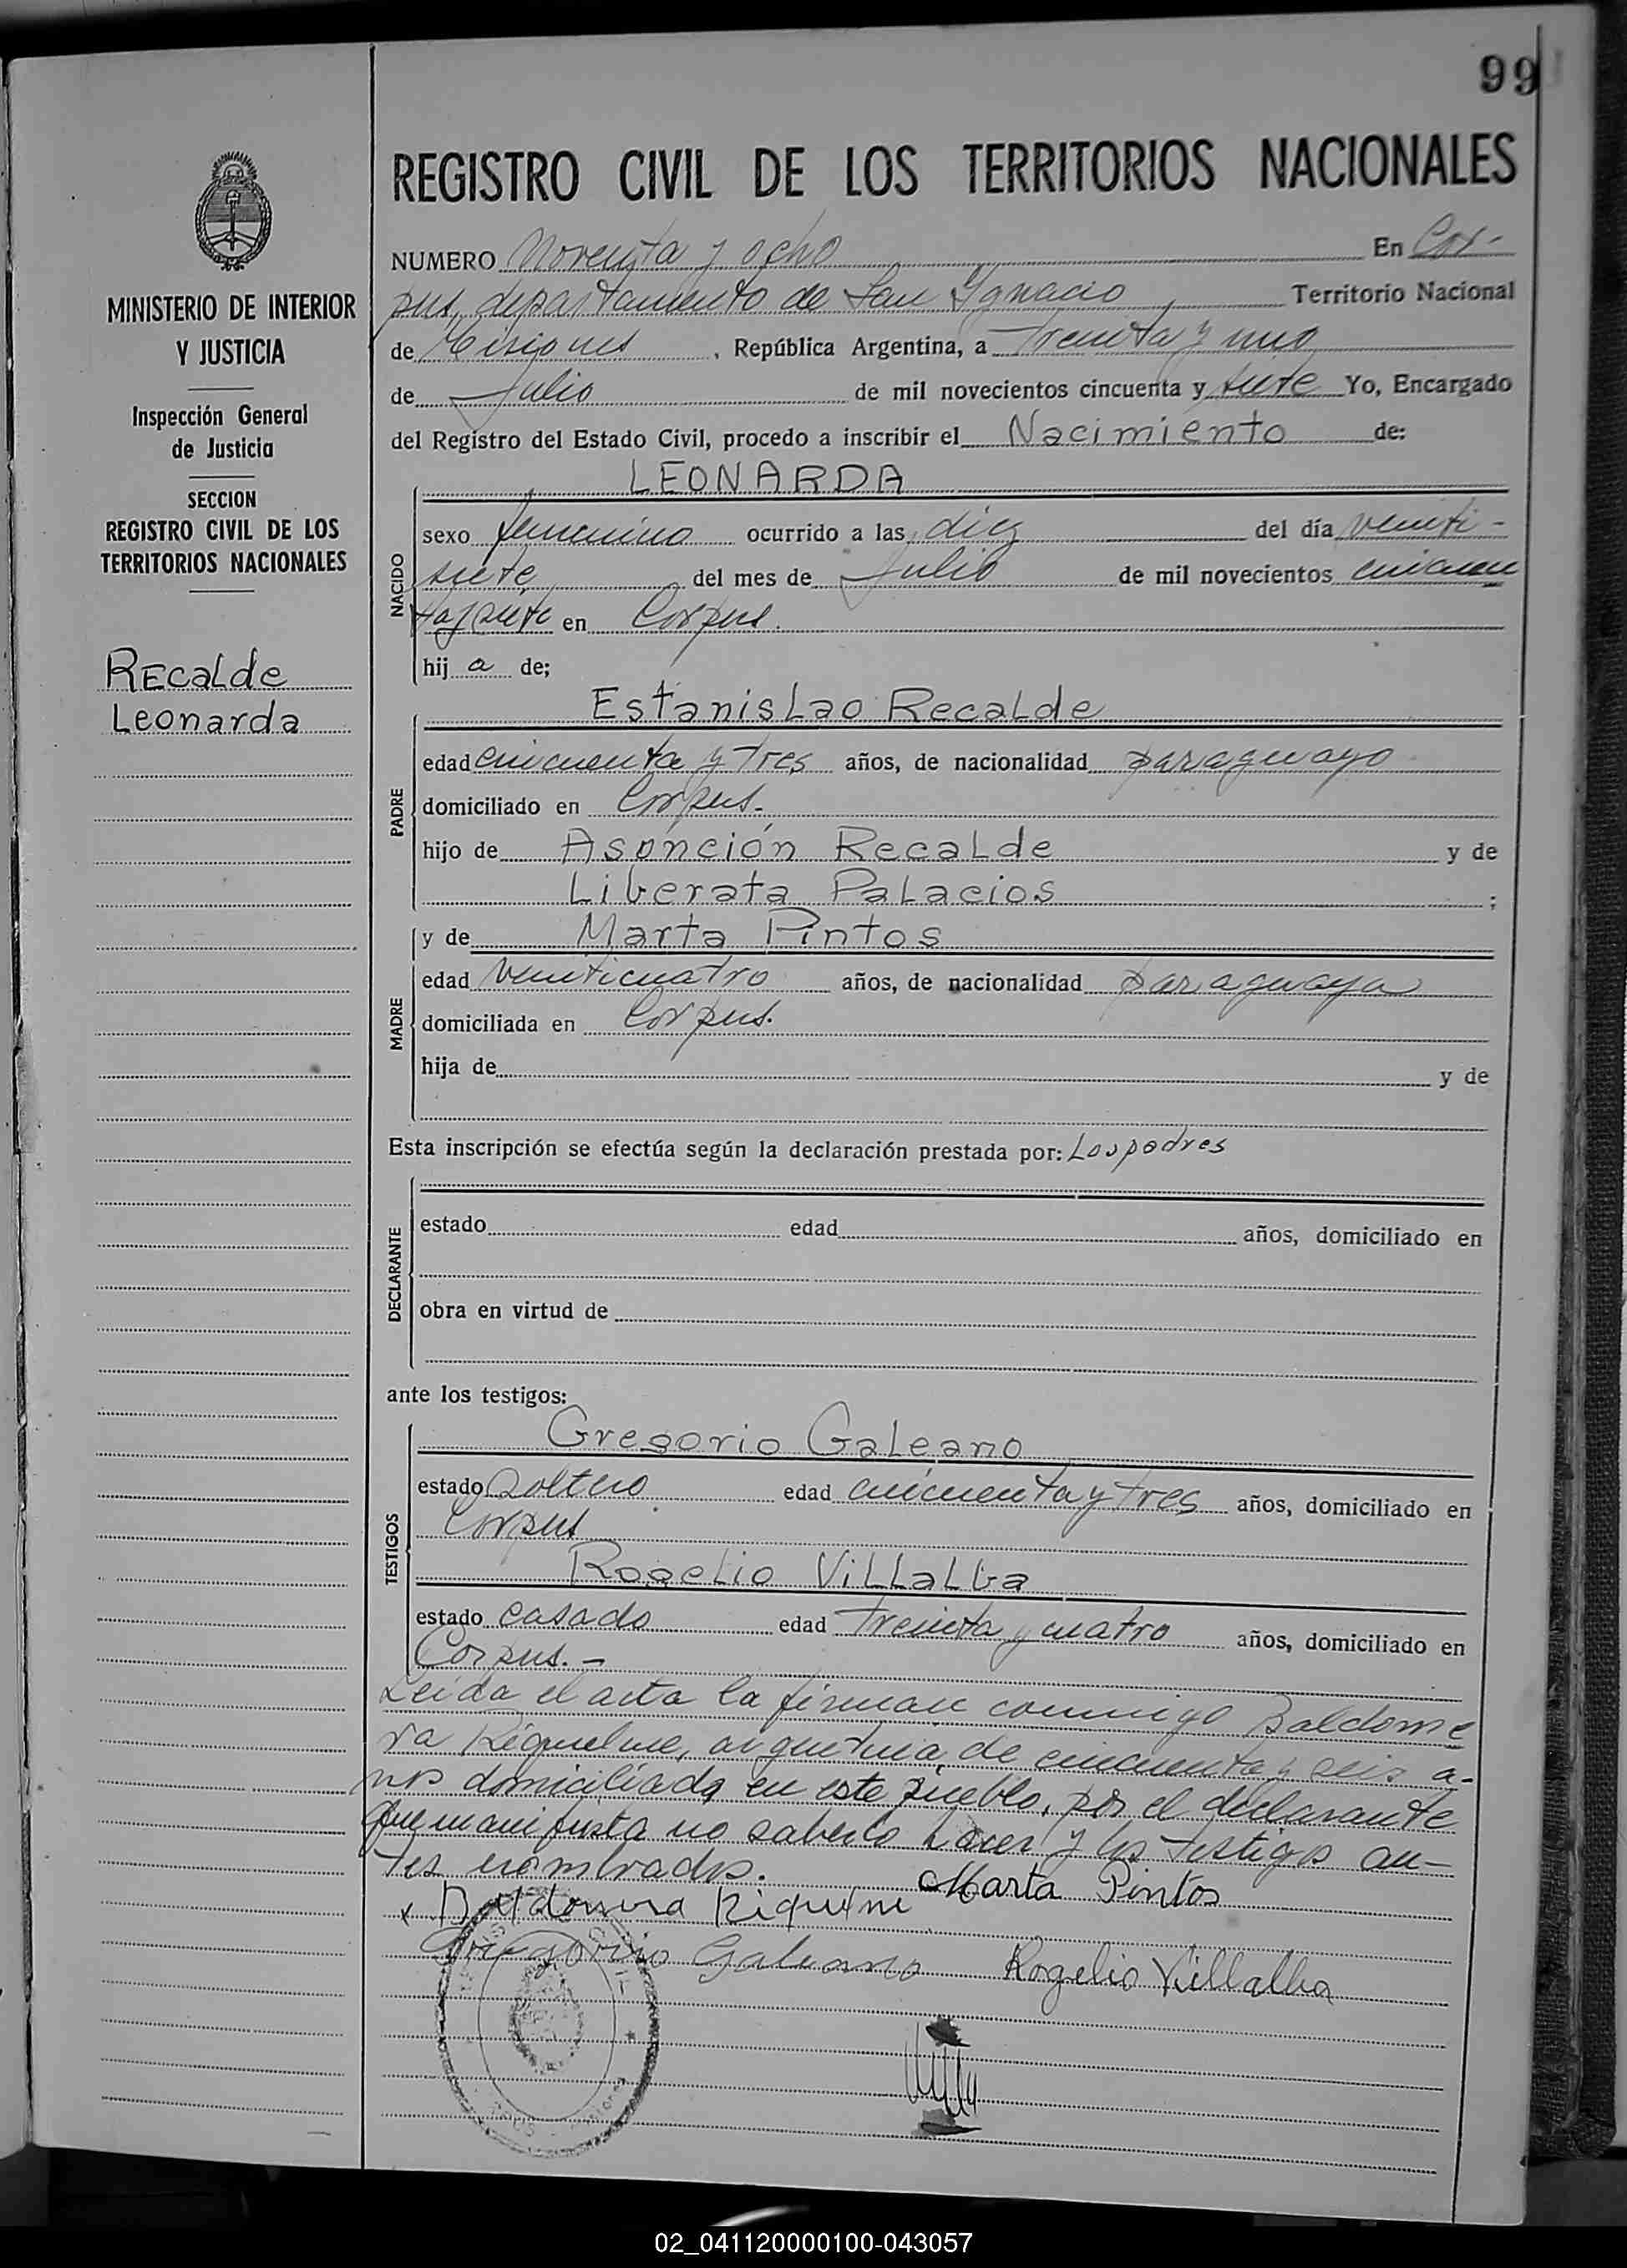 99
REGISTRO CIVIL DE LOS TERRITORIOS NACIONALES
NUMERO Noventa y ocho En Cor-
pus, departamento de San Ignacio Territorio Nacional
de Misiones, República Argentina, a treinta y uno
de Julio de mil novecientos cincuenta y siete Yo, Encargado
del Registro del Estado Civil, procedo a inscribir el Nacimiento de:
MINISTERIO DE INTERIOR
Y JUSTICIA
Inspección General
de Justicia
SECCION
REGISTRO CIVIL DE LOS
TERRITORIOS NACIONALES
Recalde
Leonarda
NACIDO
LEONARDA
sexo femenino ocurrido a las diez del día veinti-
siete del mes de Julio de mil novecientos cincuen
ta y siete en Corpus.
hij a de;
PADRE
Estanislao Recalde
edad cincuenta y tres años, de nacionalidad paraguayo
domiciliado en Corpus.
hijo de Asunción Recalde y de
Liberata Palacios ;
MADRE
y de Marta Pintos
edad veinticuatro años, de nacionalidad paraguaya
domiciliada en Corpus.
hija de y de
Esta inscripción se efectúa según la declaración prestada por: Los padres
DECLARANTE
estado edad años, domiciliado en
obra en virtud de
ante los testigos:
TESTIGOS
Gregorio Galeano
estado soltero edad cincuenta y tres años, domiciliado en
Corpus
Rogelio Villalba
estado casado edad treinta y cuatro años, domiciliado en
Corpus.-
Leída el acta la firman conmigo Baldome
ra Riquelme, argentina de cincuenta y seis a-
ños domiciliada en este pueblo, por el declarante
que manifiesta no saberlo hacer y los testigos an-
tes nombrados.
Marta Pintos
x Baldomera Riquelme
Gregorio Galeano Rogelio Villalba
02_041120000100-043057